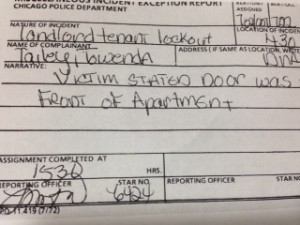 INCIDENT EXCEPTION REPORT
CHICAGO POLICE DEPARTMENT
ASSIGNED
NATURE OF INCIDENT
LOCATION OF INCIDENT
Landlord tenant lockout
430
NAME OF COMPLAINANT
ADDRESS (IF SAME AS LOCATION, WRITE
DNA
NARRATIVE:
VICTIM STATED DOOR WAS
FRONT OF APARTMENT
ASSIGNMENT COMPLETED AT
1530 HRS.
REPORTING OFFICER STAR NO. REPORTING OFFICER STAR
6424
PD-11.419 (7/72)